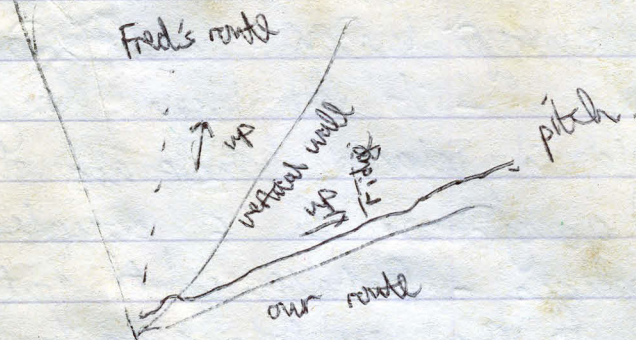 Fred's route
up
vertical wall
up
ridge
pitch
our route